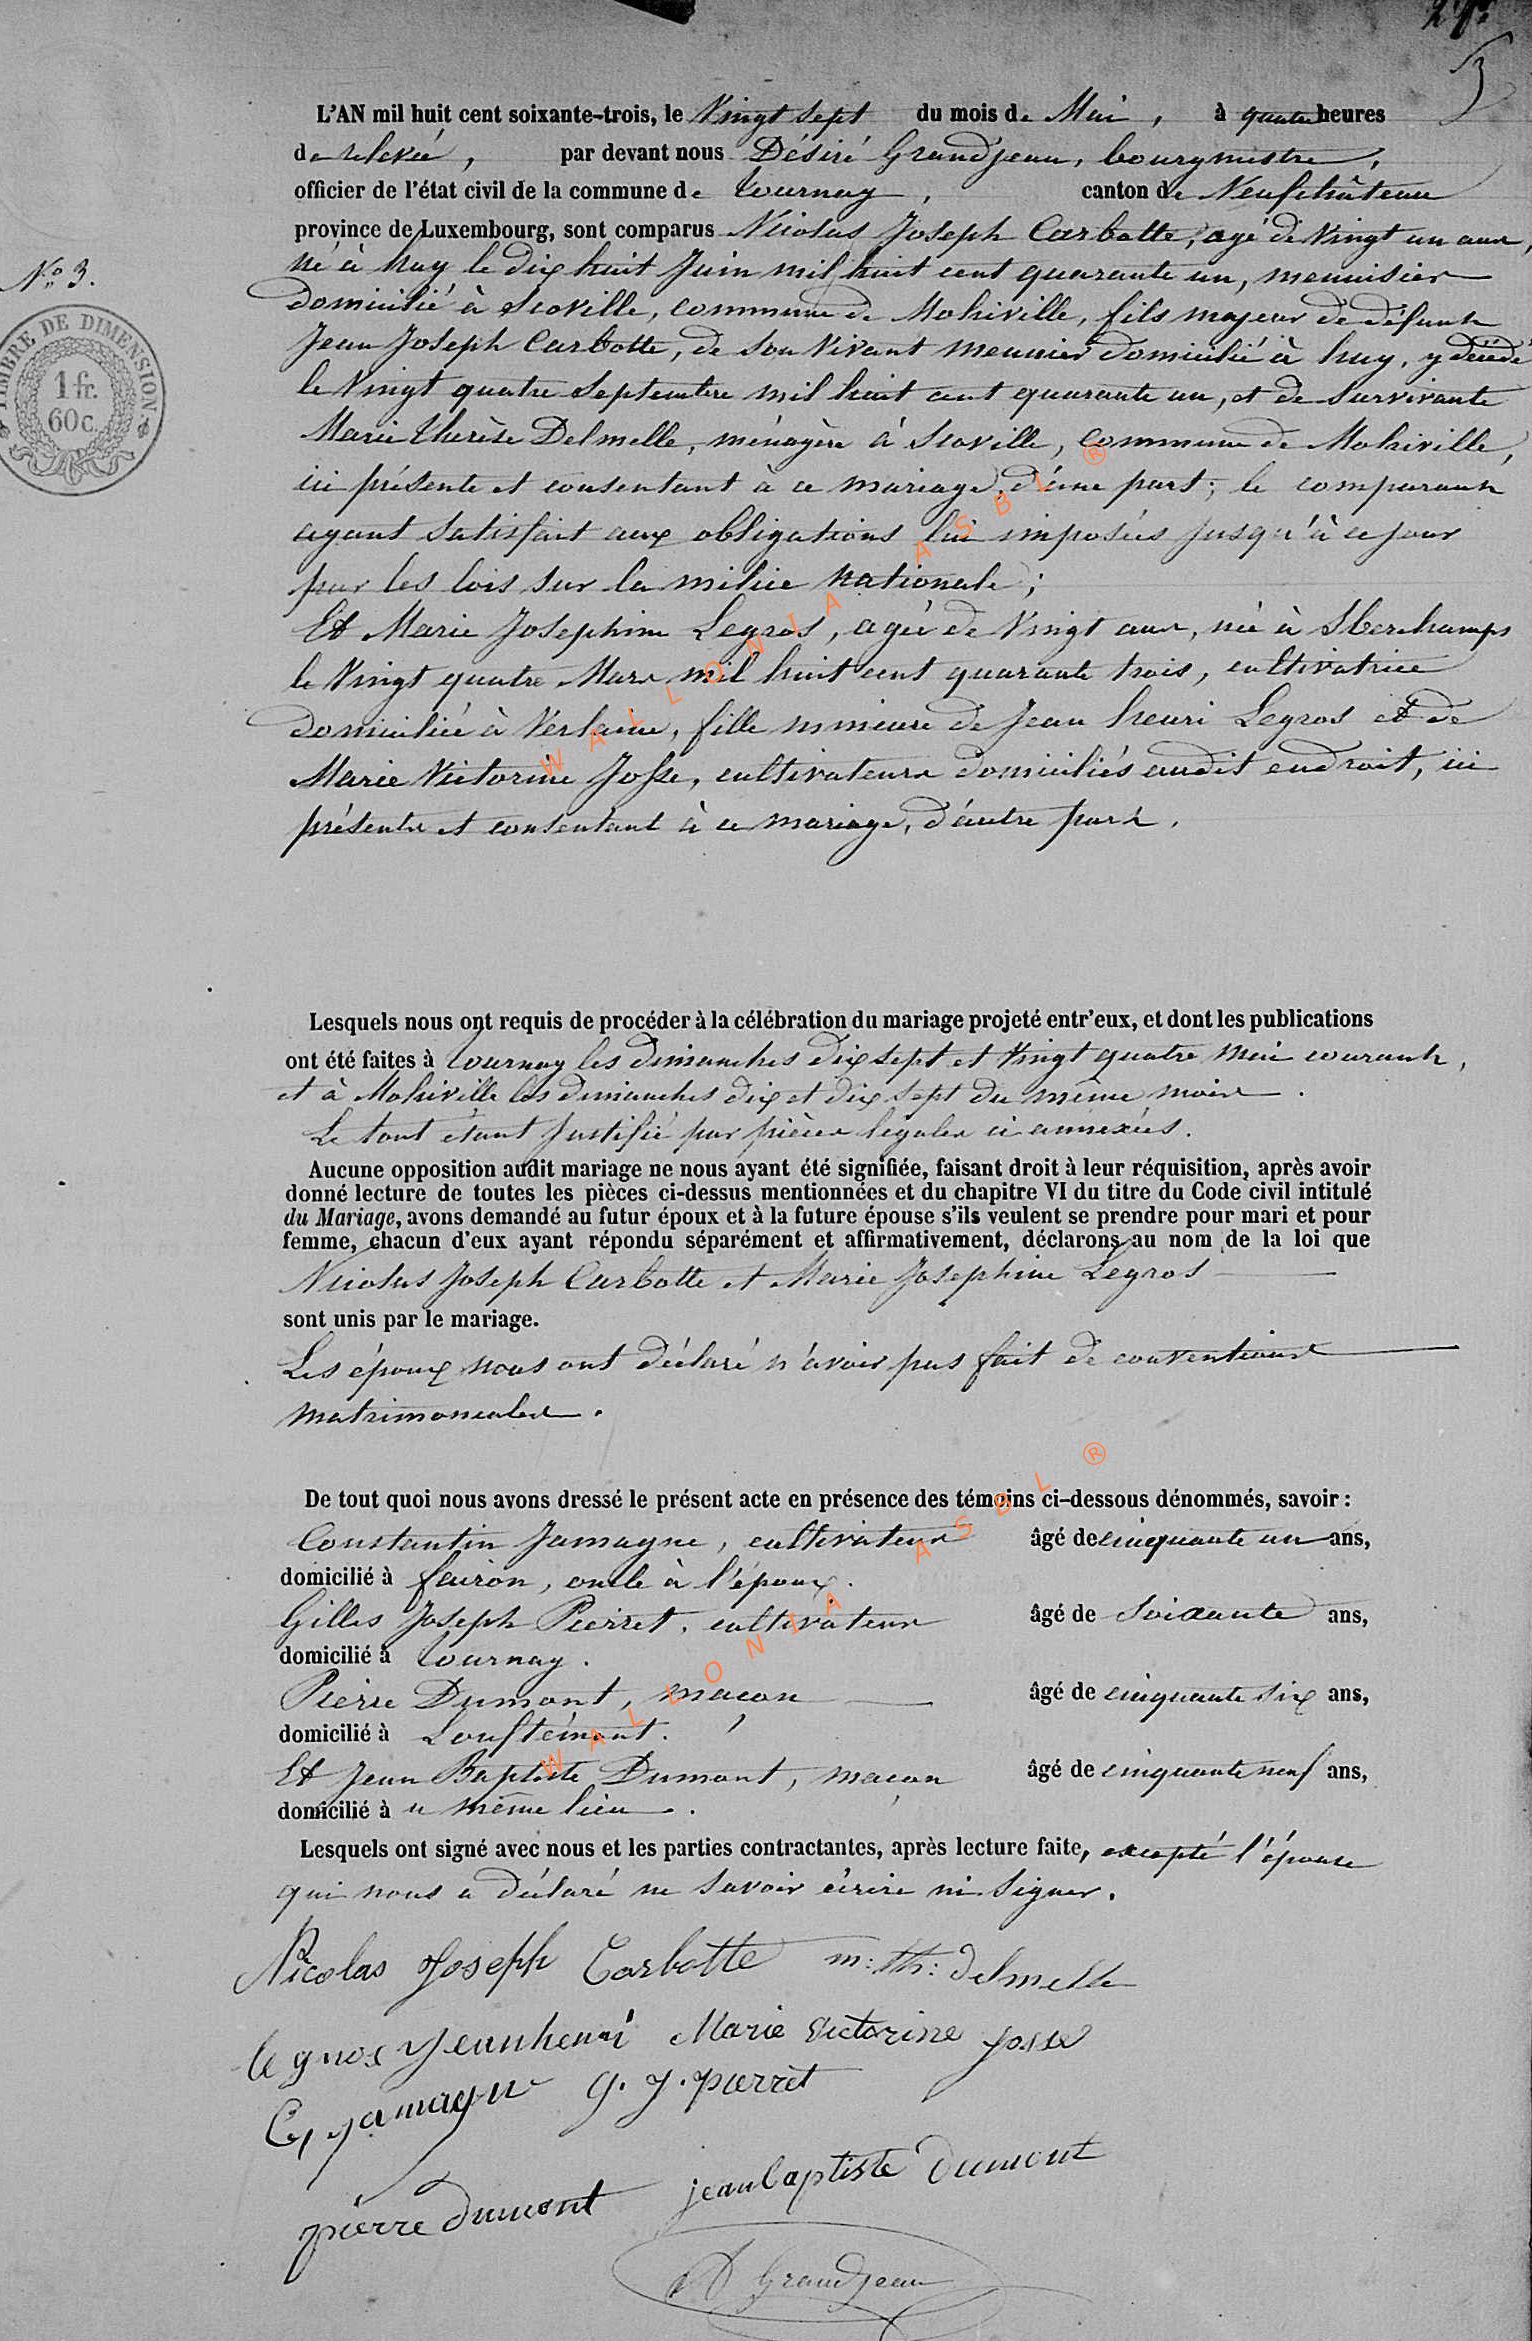 L'AN mil huit cent soixante-trois, le Vingt sept du mois de Mai, à quatre heures
de relevée, par devant nous Désiré Grandjean, bourgmestre,
officier de l'état civil de la commune de Tournay, canton de Neufchâteau
province de Luxembourg, sont comparus Nicolas Joseph Carbotte, agé de Vingt un ans,
N° 3.
né à huy le dix huit Juin mil huit cent quarante un, menuisier
domicilié à Scoville, commune de Mohiville, fils majeur de défunt
Jean Joseph Carbotte, de son Vivant meunier domicilié à huy, y décédé
le Vingt quatre Septembre mil huit cent quarante un, et de Survivante
Marie Thérèse Delmelle, ménagère à Scoville, commune de Mohiville,
ici présente et consentant à ce mariage, d'une part; le comparant
ayant satisfait aux obligations lui imposées jusqu'à ce jour
par les lois sur la milice nationale;
Et Marie Josephine Legros, agée de Vingt ans, née à Sberchamps
le Vingt quatre Mars mil huit cent quarante trois, cultivatrice
domiciliée à Verlaine, fille mineure de Jean henri Legros et de
Marie Victorine Josse, cultivateurs domiciliés audit endroit, ici
présents et consentant à ce mariage, d'autre part.
TIMBRE DE DIMENSION
1 fr.
60 c.
Lesquels nous ont requis de procéder à la célébration du mariage projeté entr'eux, et dont les publications
ont été faites à Tournay les dimanches dix sept et Vingt quatre Mai courant,
et à Mohiville les dimanches dix et dix sept du même mois.
Le tout étant Justifié par pièces légales ci annexées.
Aucune opposition audit mariage ne nous ayant été signifiée, faisant droit à leur réquisition, après avoir
donné lecture de toutes les pièces ci-dessus mentionnées et du chapitre VI du titre du Code civil intitulé
du Mariage, avons demandé au futur époux et à la future épouse s'ils veulent se prendre pour mari et pour
femme, chacun d'eux ayant répondu séparément et affirmativement, déclarons au nom de la loi que
Nicolas Joseph Carbotte et Marie Josephine Legros
sont unis par le mariage.
Les époux nous ont déclaré n'avoir pas fait de conventions
matrimoniales.
De tout quoi nous avons dressé le présent acte en présence des témoins ci-dessous dénommés, savoir :
Constantin Jamagne, cultivateur âgé de cinquante un ans,
domicilié à fairon, oncle à l'époux.
Gilles Joseph Pierret, cultivateur âgé de Soixante ans,
domicilié à Tournay.
Pierre Dumont, maçon âgé de cinquante six ans,
domicilié à Louftémont.
Et Jean Baptiste Dumont, maçon âgé de cinquante neuf ans,
domicilié à ce même lieu.
Lesquels ont signé avec nous et les parties contractantes, après lecture faite, excepté l'épouse
qui nous a déclaré ne Savoir écrire ni Signer.
Nicolas Joseph Carbotte m: th: delmelle
legros jeanhenri Marie victorine josse
C, jamagne g. j. pierret
pierre dumont jeanbaptiste dumont
D Grandjean
WALLONIA ASBL ®
WALLONIA ASBL ®